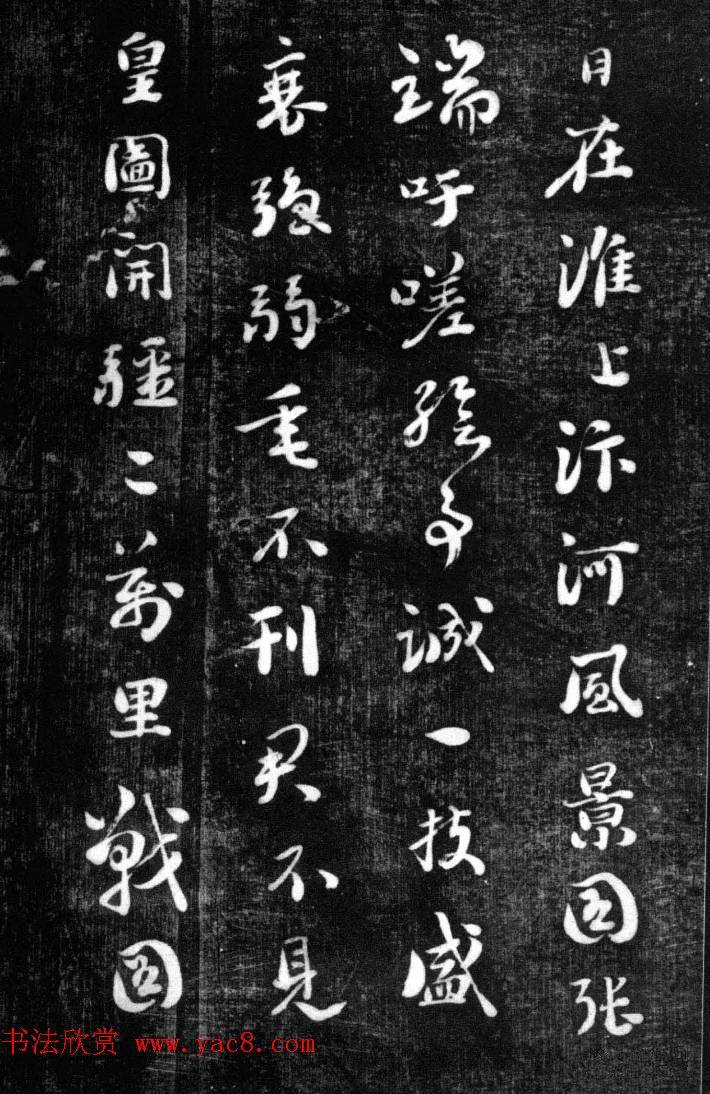 日在淮上汴河風景图張
端吁嗟繪事誠一技盛
衰強弱毛不刊君不見
皇圖開疆二萬里戰图
书法欣赏 www.yac8.com